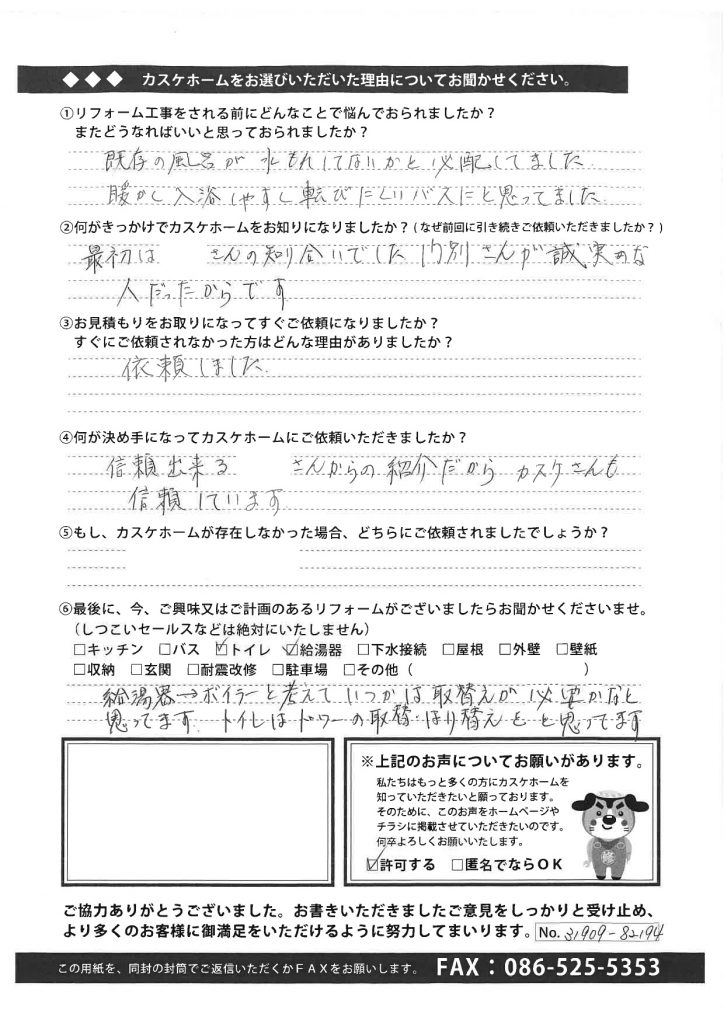 ◆ ◆ ◆ カスケホームをお選びいただいた理由についてお聞かせください。
①リフォーム工事をされる前にどんなことで悩んでおられましたか？
またどうなればいいと思っておられましたか？
既存の風呂が水もれしてないかと心配してました
暖かく入浴しやすく転びにくいバスにと思ってました
②何がきっかけでカスケホームをお知りになりましたか？(なぜ前回に引き続きご依頼いただきましたか？)
最初は さんの知り合いでした 内別さんが誠実的な
人だったからです
③お見積もりをお取りになってすぐご依頼になりましたか？
すぐにご依頼されなかった方はどんな理由がありましたか？
依頼しました
④何が決め手になってカスケホームにご依頼いただきましたか？
信頼出来る さんからの紹介だから カスケさんも
信頼しています
⑤もし、カスケホームが存在しなかった場合、どちらにご依頼されましたでしょうか？
⑥最後に、今、ご興味又はご計画のあるリフォームがございましたらお聞かせくださいませ。
（しつこいセールスなどは絶対にいたしません）
□キッチン □バス ☑トイレ ☑給湯器 □下水接続 □屋根 □外壁 □壁紙
□収納 □玄関 □耐震改修 □駐車場 □その他（ ）
給湯器→ボイラーと考えていつかは取替えが必要かなと
思ってます。トイレはドワーの取替・はり替えをと思ってます
※上記のお声についてお願いがあります。
私たちはもっと多くの方にカスケホームを
知っていただきたいと願っております。
そのために、このお声をホームページや
チラシに掲載させていただきたいのです。
何卒よろしくお願いいたします。
修
☑許可する □匿名でならＯＫ
ご協力ありがとうございました。お書きいただきましたご意見をしっかりと受け止め、
より多くのお客様に御満足をいただけるように努力してまいります。 No. 31909-82194
この用紙を、同封の封筒でご返信いただくかＦＡＸをお願いします。 FAX：086-525-5353